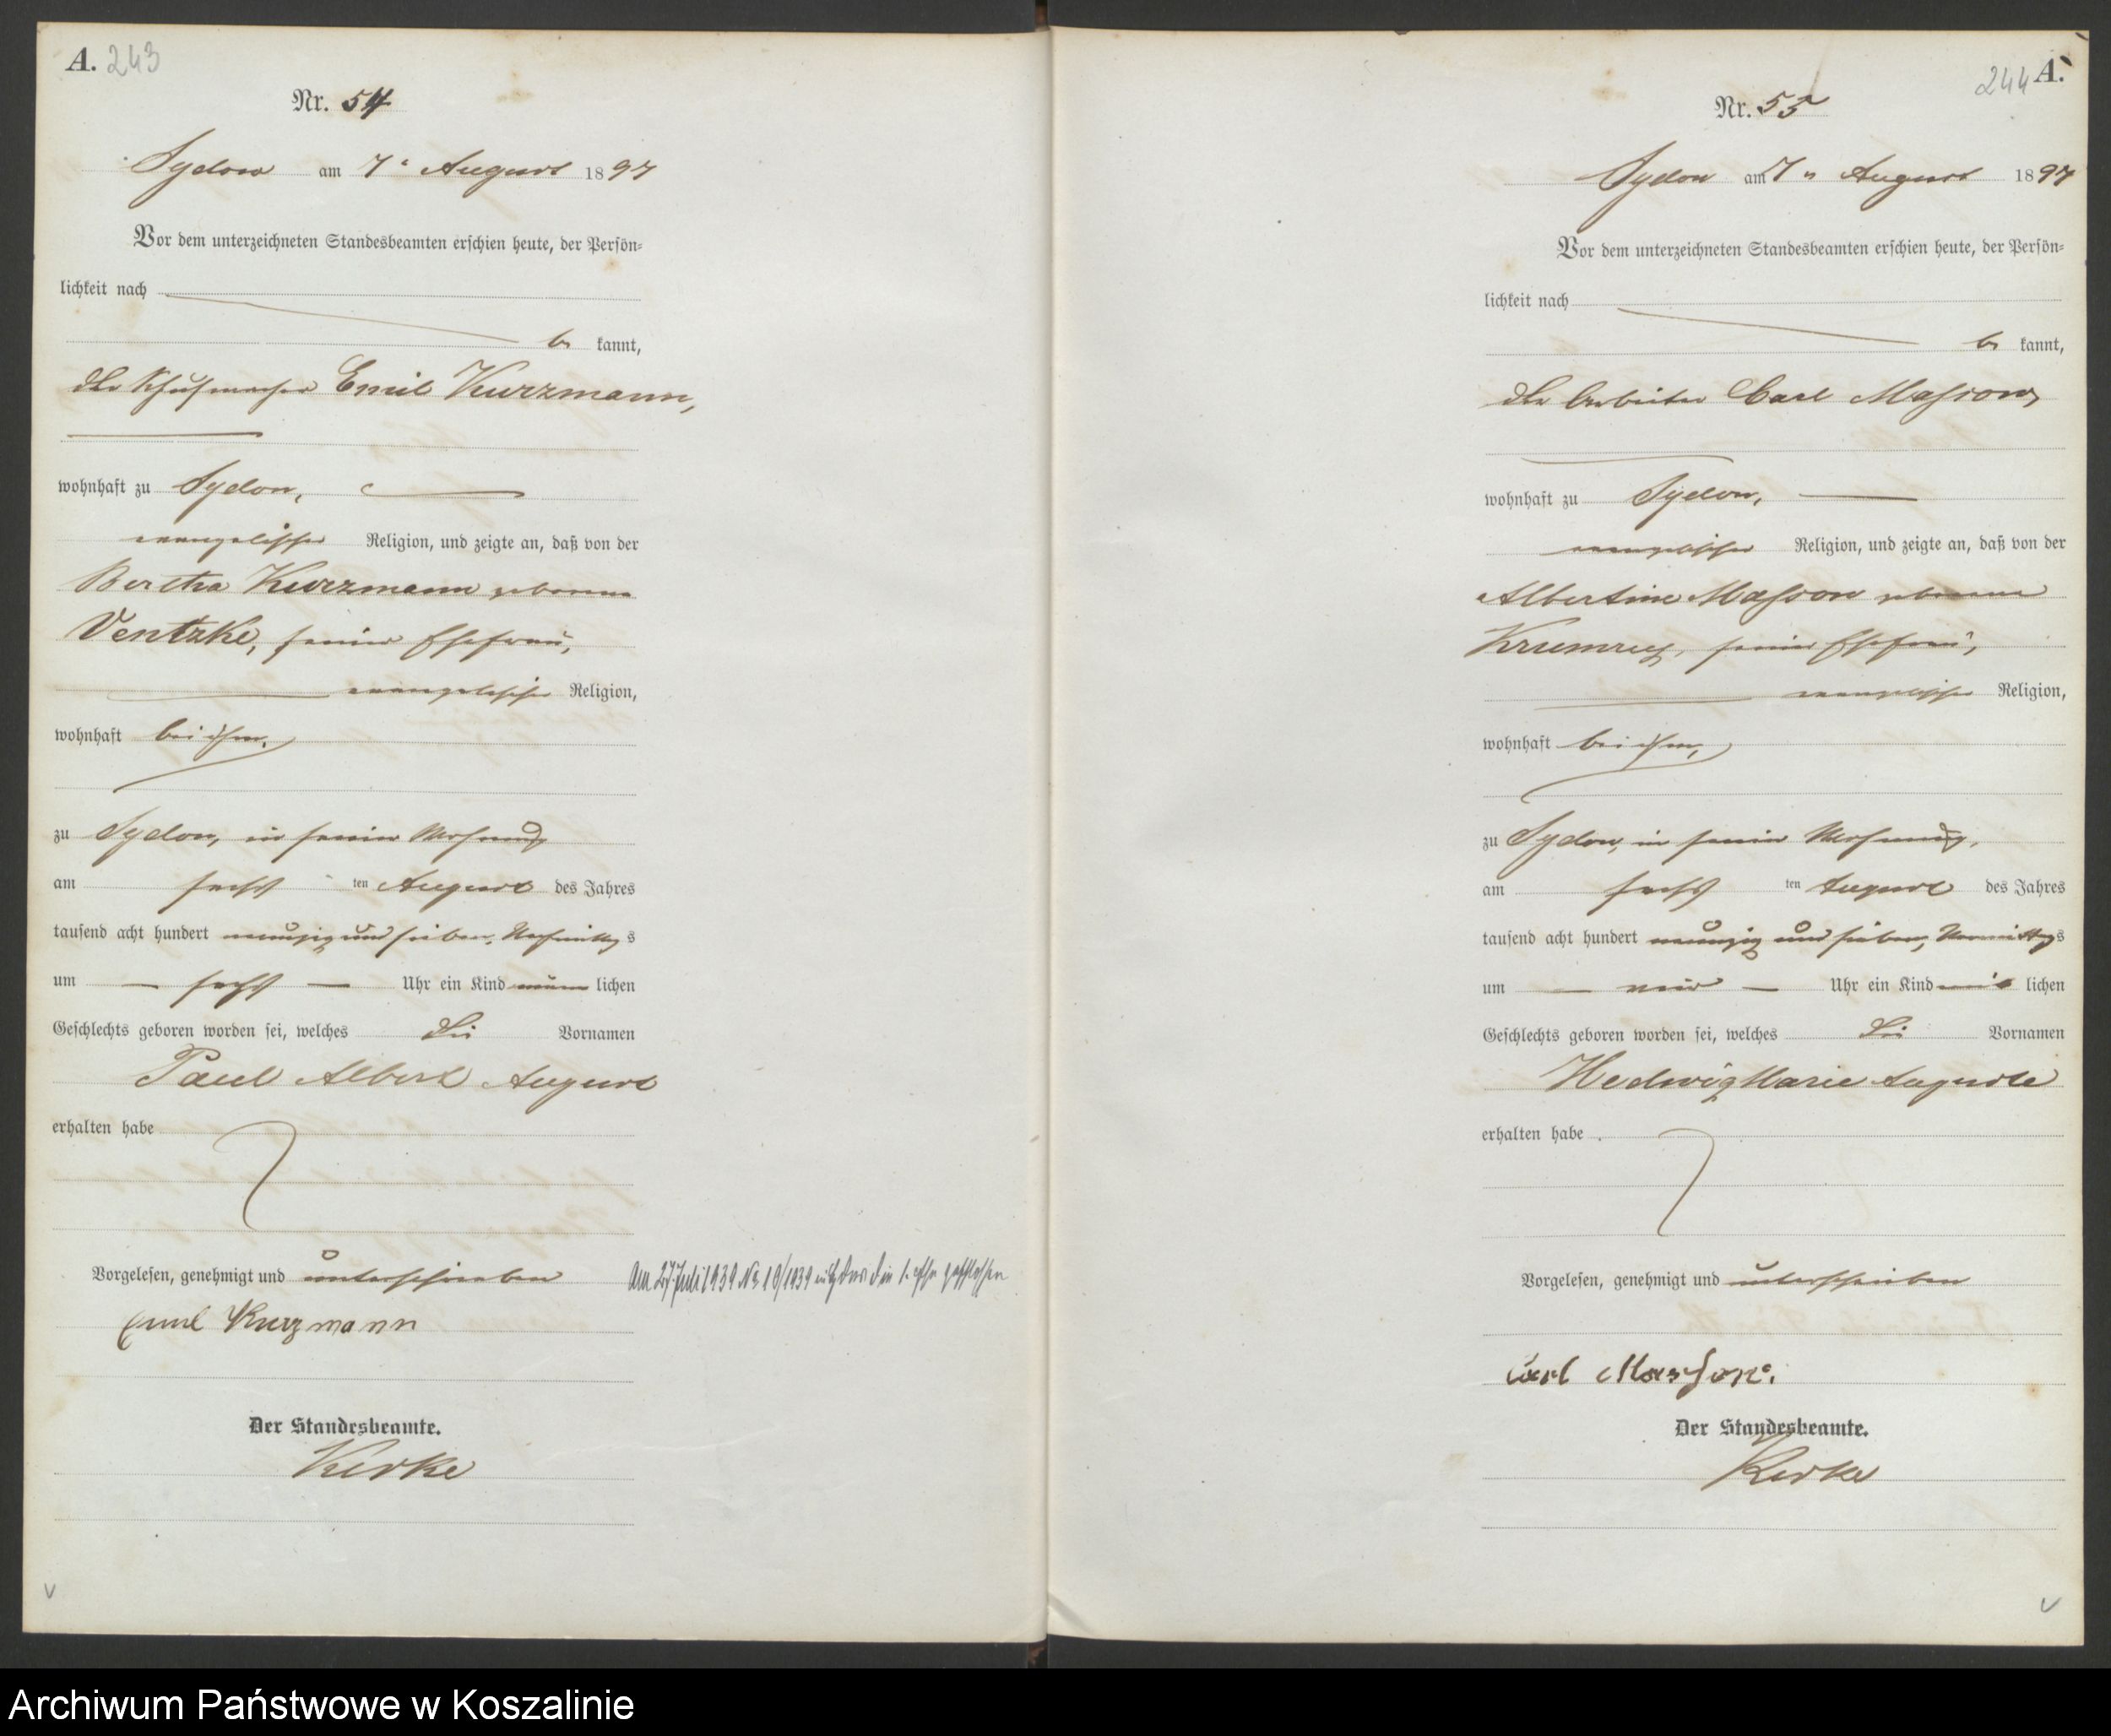 A. 243
Nr. 54
Sydow am 7. August 1897
Vor dem unterzeichneten Standesbeamten erschien heute, der Persön-
lichkeit nach
be kannt,
der Schuhmacher Emil Kurzmann,
wohnhaft zu Sydow,
evangelischer Religion, und zeigte an, daß von der
Bertha Kurzmann geborene
Ventzke, seiner Ehefrau,
evangelischer Religion,
wohnhaft bei ihm,
zu Sydow, in seiner Wohnung
am sechs ten August des Jahres
tausend acht hundert neunzig und sieben, Nachmittag s
um sechs Uhr ein Kind männ lichen
Geschlechts geboren worden sei, welches die Vornamen
Paul Albert August
erhalten habe
Vorgelesen, genehmigt und unterschrieben
Am 27 Juli 1939 Nr 10/1939
Emil Kurzmann
Der Standesbeamte.
Kerke
244 A.
Nr. 55
Sydow am 7. August 1897
Vor dem unterzeichneten Standesbeamten erschien heute, der Persön-
lichkeit nach
be kannt,
der Arbeiter Carl Massow,
wohnhaft zu Sydow,
evangelischer Religion, und zeigte an, daß von der
Albertine Massow geborene
seiner Ehefrau,
evangelischer Religion,
wohnhaft bei ihm,
zu Sydow, in seiner Wohnung,
am sechs ten August des Jahres
tausend acht hundert neunzig und sieben, Vormittags
um Uhr ein Kind lichen
Geschlechts geboren worden sei, welches die Vornamen
Hedwig Marie Auguste
erhalten habe.
Vorgelesen, genehmigt und unterschrieben
Carl
Der Standesbeamte.
Kerke
Archiwum Państwowe w Koszalinie